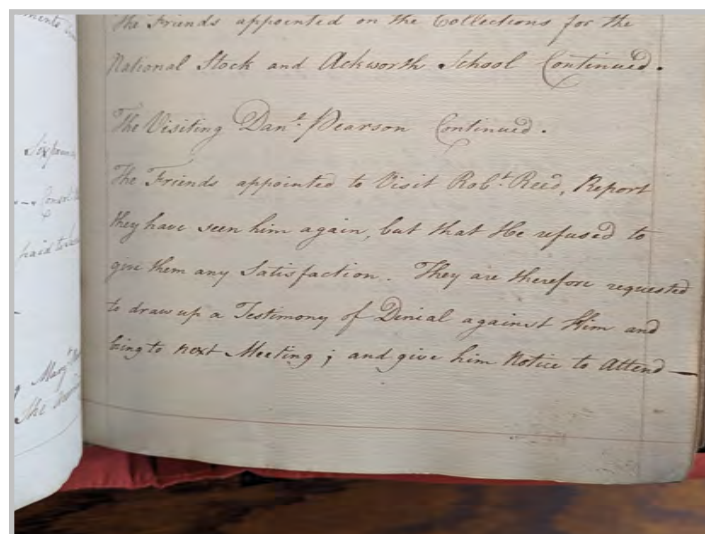 The Friends appointed on the Collections for the
National Stock and Ackworth School Continued.
The Visiting Danl. Pearson Continued.
The Friends appointed to Visit Robt. Reed, Report
they have seen him again, but that He refused to
give them any Satisfaction. They are therefore requested
to draw up a Testimony of Denial against Him and
bring to next Meeting; and give him Notice to Attend—
paid to
Margt
She